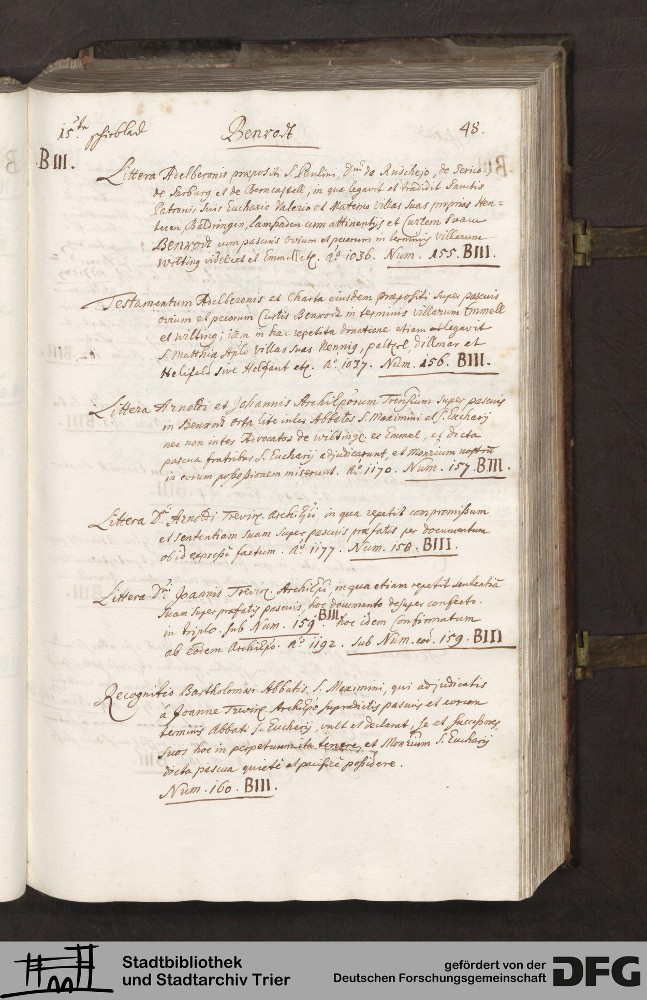 15te schieblad Benrodt 48.
B III.
Littera Adelberonis præpositi S. Paulini, Dni de Ruscheio, de Serico
de Sarburg et de Berncastell, in qua legavit et tradidit Sanctis
Patronis Suis Euchario Valerio et Materno villas suas proprias Hen=
teren, Baldringen, Lampaden cum attinentijs et Curtem Suam
Benrodt cum pascuis ovium et pecorum in terminis villarum
Wilting videlicet et Emmell etc. Aº 1036. Num. 155. BIII.
Testamentum Adelberonis et Charta eiusdem præpositi super pascuis
ovium et pecorum Curtis Benrodt in terminis villarum Emmell
et Wilting; item in hac repetita donatione etiam legavit
S. Matthiæ Aplo villas suas Nennig, paltzel, dilmar et
Helifeld sive Helfant etc. Aº 1037. Num. 156. BIII.
Littera Arnoldi et Johannis Archiēporum Trensium super pascuis
in Benrodt orta lite inter Abbates S. Maximini et S. Eucharij
nec non inter Advocatos de wilting et Emmel, et dicta
pascua fratribus S. Eucharij adjudicarunt, et Monrium nostrū
in eorum possessionem miserunt. Aº 1170. Num. 157. BIII.
Littera D. Arnoldi Trevir. Archiēpi in qua repetit compromissum
et sententiam suam super pascuis præfatis per documentum
ob id expresse factum. Aº 1177. Num. 158. BIII.
Littera Dni Joannis Trevir. Archiēpi, in qua etiam repetit sententiā
suam super præfatis pascuis, hoc documento desuper confecto.
in triplo. sub Num. 159 BIII. hoc idem confirmatum
ab eodem Archiēpo. Aº 1192. Sub Num. eod. 159. BIII
Recognitio Bartholomæi Abbatis S. Maximini, qui adjudicatis
à Joanne Trevir. Archiēpo supradictis pascuis et eorum
terminis Abbati S. Eucharij, vult et declarat, se et successores
suos hoc in perpetuum ita tenere, et Monrium S. Eucharij
dicta pascua quietè et pacificè possidere.
Num. 160. BIII.
Stadtbibliothek
und Stadtarchiv Trier
gefördert von der
Deutschen Forschungsgemeinschaft
DFG